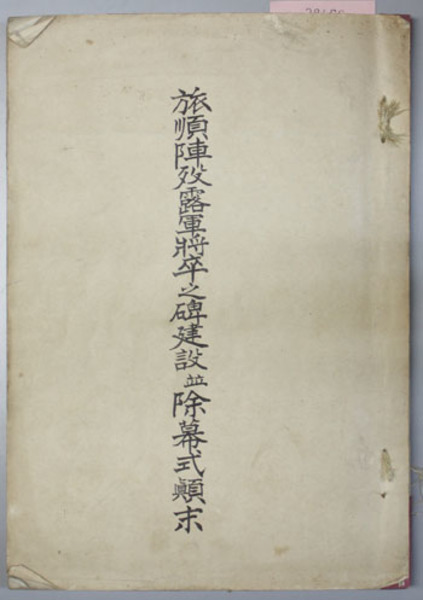 旅順陣歿露軍将卒之碑建設並除幕式顛末